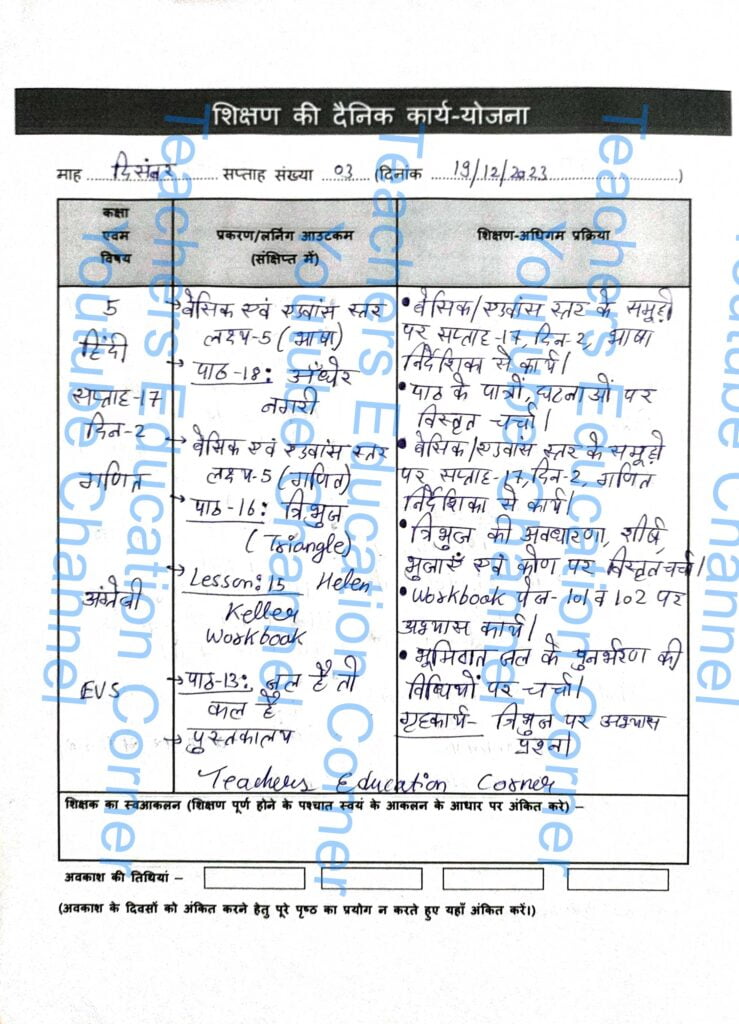 शिक्षण की दैनिक कार्य-योजना
माह दिसंबर सप्ताह संख्या 03 (दिनांक 19/12/2023)
कक्षा
एवम
विषय
प्रकरण/लर्निंग आउटकम
(संक्षिप्त में)
शिक्षण-अधिगम प्रक्रिया
5
हिंदी
सप्ताह-17
दिन-2
गणित
अंग्रेजी
EVS
→ बेसिक एवं एडवांस स्तर
लक्ष्य-5 (भाषा)
→ पाठ-18: अंधेर
नगरी
→ बेसिक एवं एडवांस स्तर
लक्ष्य-5 (गणित)
→ पाठ-16: त्रिभुज
(Triangle)
→ Lesson:15 Helen
Keller
Workbook
→ पाठ-13: जल है तो
कल है
→ पुस्तकालय
• बेसिक/एडवांस स्तर के समूहों
पर सप्ताह-17, दिन-2, भाषा
निर्देशिका से कार्य।
• पाठ के पात्रों, घटनाओं पर
विस्तृत चर्चा।
• बेसिक/एडवांस स्तर के समूहों
पर सप्ताह-17, दिन-2, गणित
निर्देशिका से कार्य।
• त्रिभुज की अवधारणा, शीर्ष,
भुजाएँ एवं कोण पर विस्तृत चर्चा।
• Workbook पेज-101 व 102 पर
अभ्यास कार्य।
• भूमिगत जल के पुनर्भरण की
विधियों पर चर्चा।
गृहकार्य- त्रिभुज पर अभ्यास
प्रश्न।
Teachers Education Corner
शिक्षक का स्वआकलन (शिक्षण पूर्ण होने के पश्चात स्वयं के आकलन के आधार पर अंकित करे) –
अवकाश की तिथियां –
(अवकाश के दिवसों को अंकित करने हेतु पूरे पृष्ठ का प्रयोग न करते हुए यहाँ अंकित करें।)
Teachers Education Corner
Youtube Channel
Teachers Education Corner
Youtube Channel
Teachers Education Corner
Youtube Channel